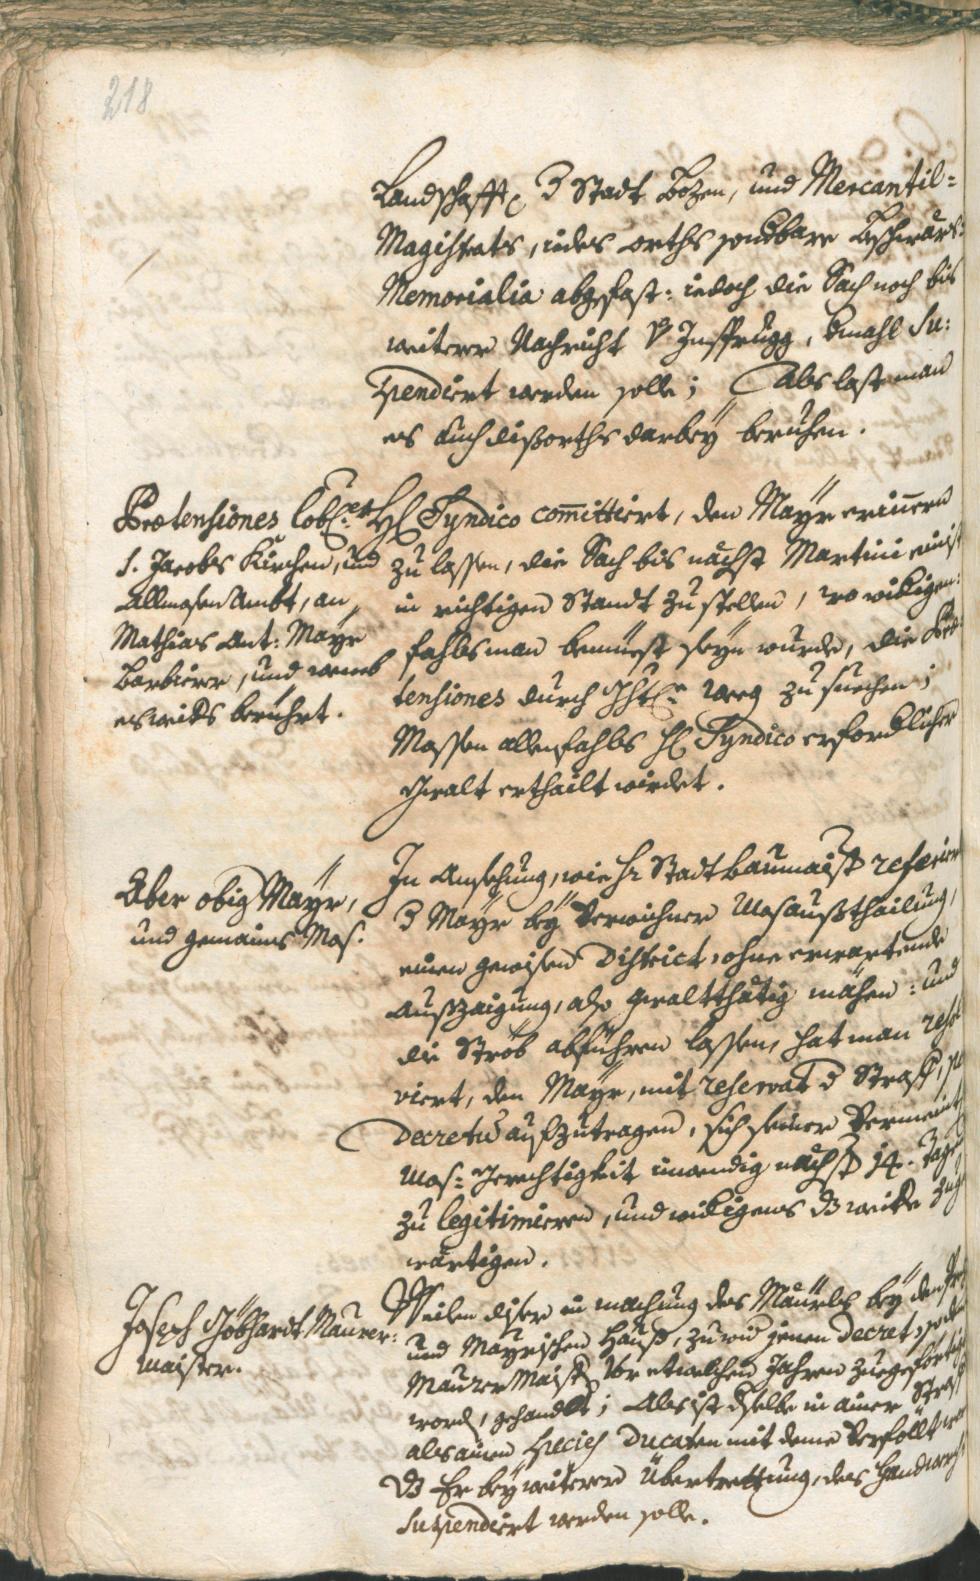 218
Landschafft, d Stadt Bozen, und Mercantil=
Magistrats, iedes orths sondbare Beschwärs=
Memorialia abgefast: iedoch die Sach noch bis
weiterer Nachricht v Insprugg, dmahl Su:
spendiert werden solle; Als last man
es auch dißorths darbeÿ beruhen.
Prætensiones lobl:
S. Jacobs Kirchen, und
Allmosen Ambt, an
Mathias Ant: Maÿr
Barbierer, und
berührt.
H Syndico com̄ittiert, den Maÿr erinnern
zu lassen, die Sach bis nächst Martini
in richtigen Standt zu stellen, wo widigen=
fahls man bemüest seÿn wurde, die Præ=
tensiones durch Weeg zu suechen;
Massen allenfahls H Syndico erfordlicher
Gwalt erthailt wirdet.
Aber obig Maÿr,
und gemaines Mos.
In Ansehung, wie Hr Stadtbaumaist referiert
d Maÿr beÿ verwichner Mosaußthailung,
einen gewisen District, ohne erwartende
Außzaigung, also gwaltthätig mähen: und
die Ströb abführen lassen, hat man resol
viert, den Maÿr, mit reservat d Straff, p
Decretū aufzutragen, sich seiner vermeint
Mos: Gerechtigkeit inwendig nächst 14. Tagen
zu legitimieren, und widigens dz weitere zuge
wärtigen.
Joseph Göbhardt Maurer:
maister.
Weilen diser in machung des Mäurls beÿ den
und Maÿrischen Hauß, zuwid jenen Decret, so den
Maurer Maist vor etwelchen Jahren zuegefertigt
word, gehandlt; Als ist dselbe in ainer Straff
als ainen Species Ducaten mit deme verföllt
dz Er beÿ weiterer Übertrettung, des Handwerchs
suspendiert werden solle.